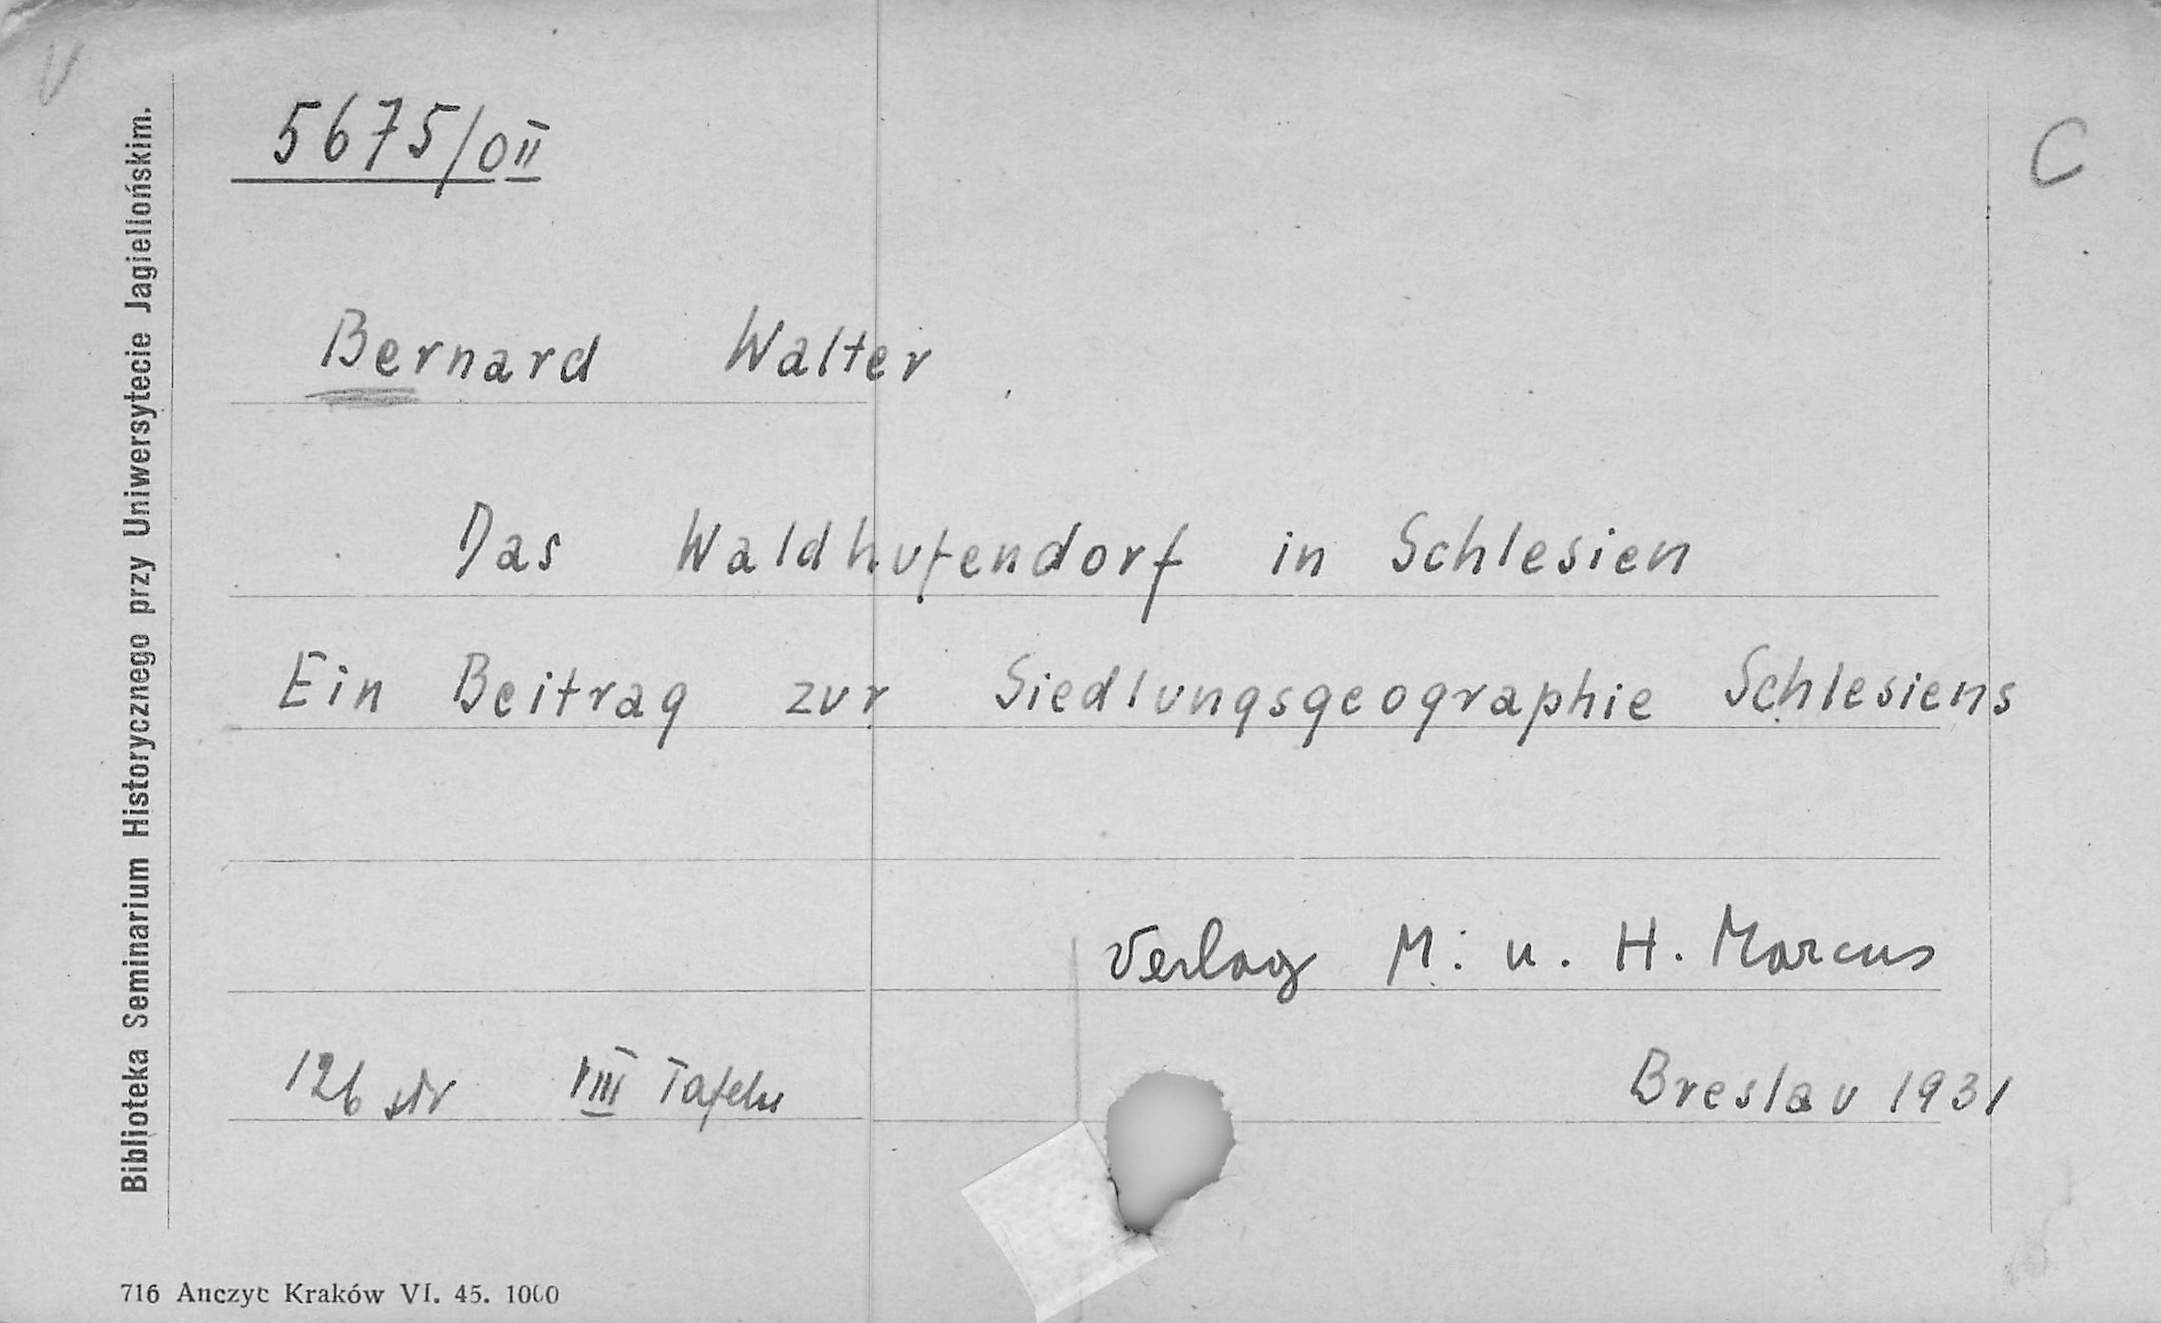 V
5675/0II
C
Bernard Walter
Das Waldhufendorf in Schlesien
Ein Beitrag zur Siedlungsgeographie Schlesiens
Verlag M. u. H. Marcus
126 str VIII Tafeln
Breslau 1931
Biblioteka Seminarium Historycznego przy Uniwersytecie Jagiellońskim.
716 Anczyc Kraków VI. 45. 1000